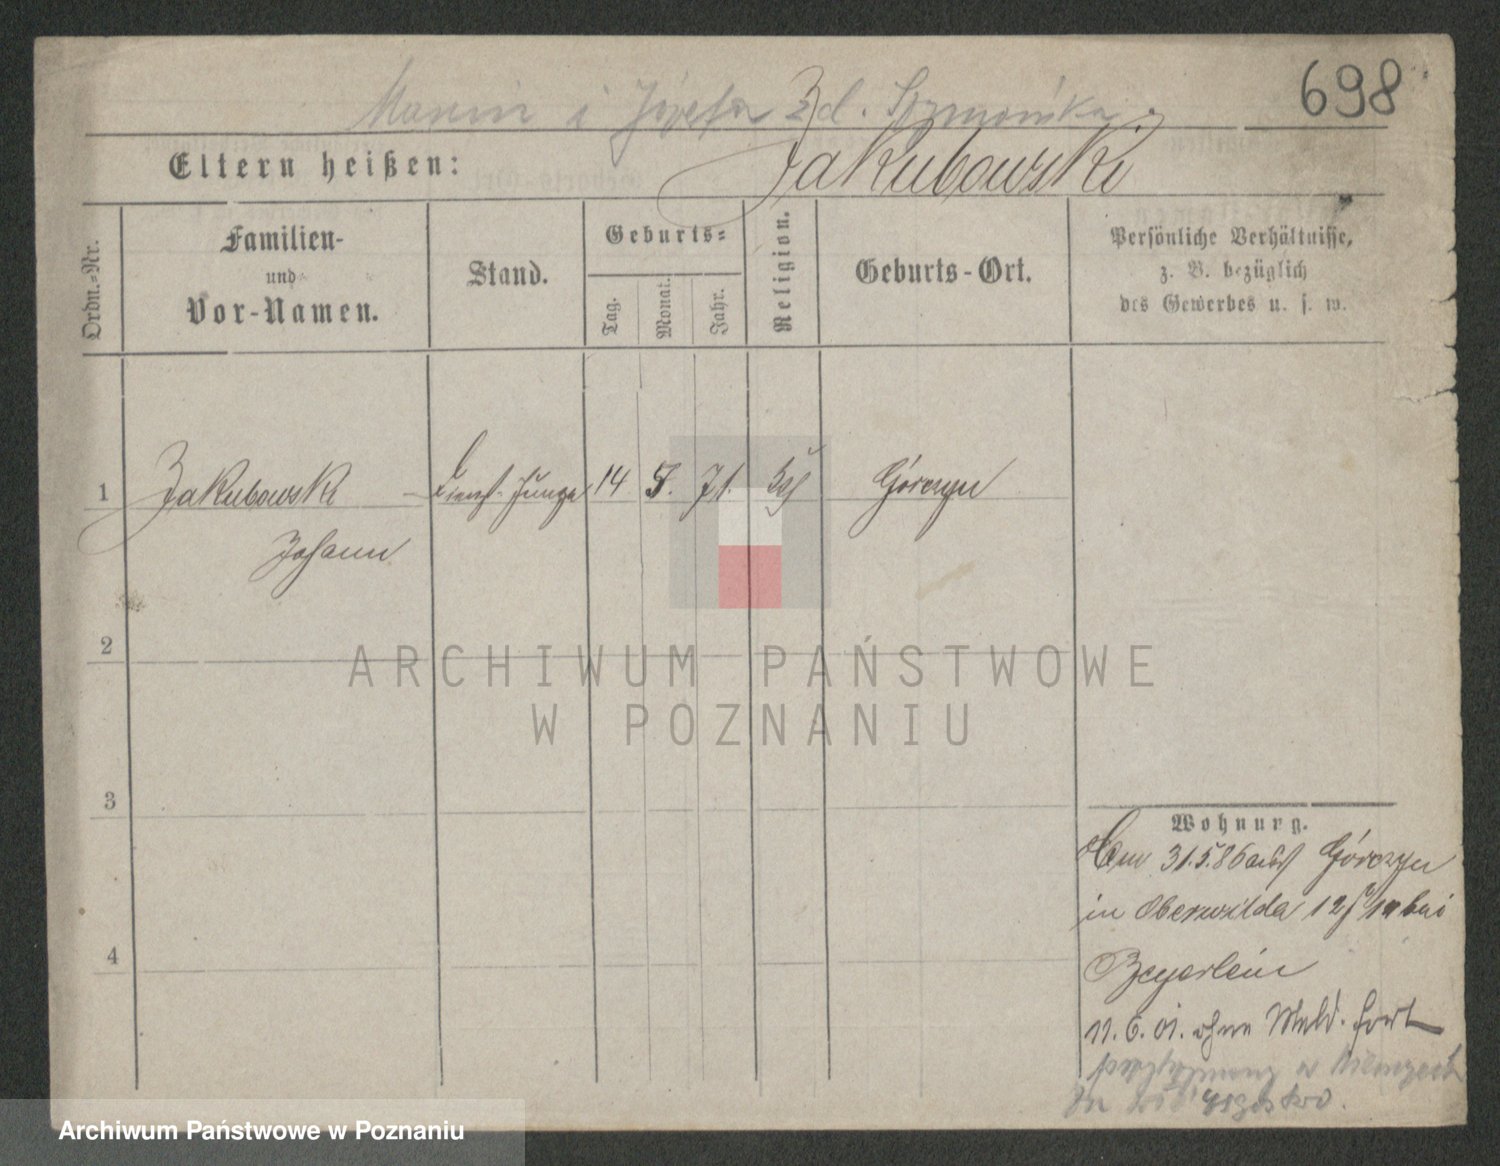 698
Marcin i Józefa z d. Szymańska.
Eltern heißen: Jakubowski
Ordn.-Nr.
Familien-
und
Vor-Namen.
Stand.
Geburts-
Tag.
Monat.
Jahr.
Religion.
Geburts-Ort.
Persönliche Verhältnisse,
z. B. bezüglich
des Gewerbes u. s. w.
1 Jakubowski Dienst-Junge 14 5. 71. kath Górczyn
Johann
2
3
4
Wohnung.
Am 31.5.86 aus Górczyn
in Oberwilda 12 bei
Beyerlein
11.6.01. ohne Meld. fort
w Niemczech
ARCHIWUM PAŃSTWOWE
W POZNANIU
Archiwum Państwowe w Poznaniu